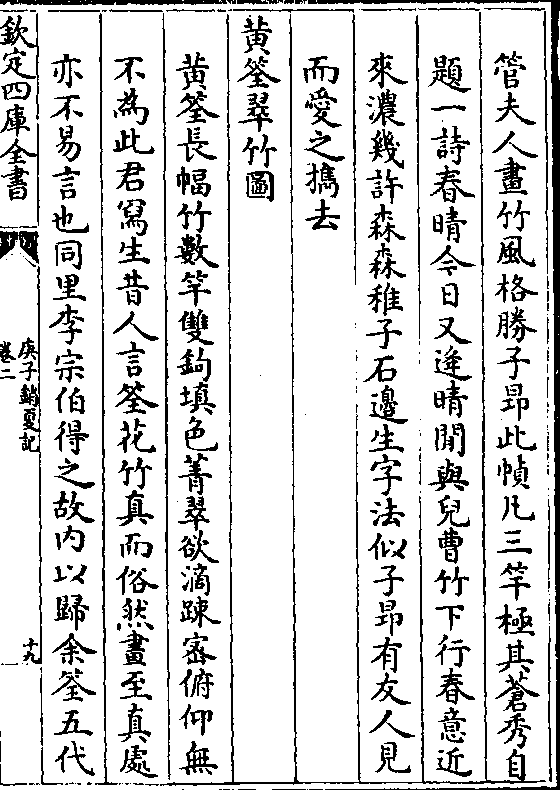 管夫人畫竹風格勝子昂此幀凡三竿極其蒼秀自
題一詩春晴今日又逢晴閒與兒曹竹下行春意近
來濃幾許森森稚子石邊生字法似子昂有友人見
而愛之攜去
黃筌翠竹圖
黃筌長幅竹數竿雙鉤填色菁翠欲滴踈宻俯仰無
不為此君寫生昔人言筌花竹真而俗然畫至真處
亦不易言也同里李宗伯得之故內以歸余筌五代
欽定四庫全書
庚子銷夏記
卷二
十九